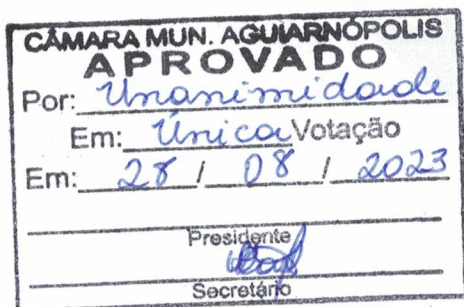 CÂMARA MUN. AGUIARNÓPOLIS
APROVADO
Por: Unanimidade
Em: Única Votação
Em: 28 / 08 / 2023
Presidente
Secretário